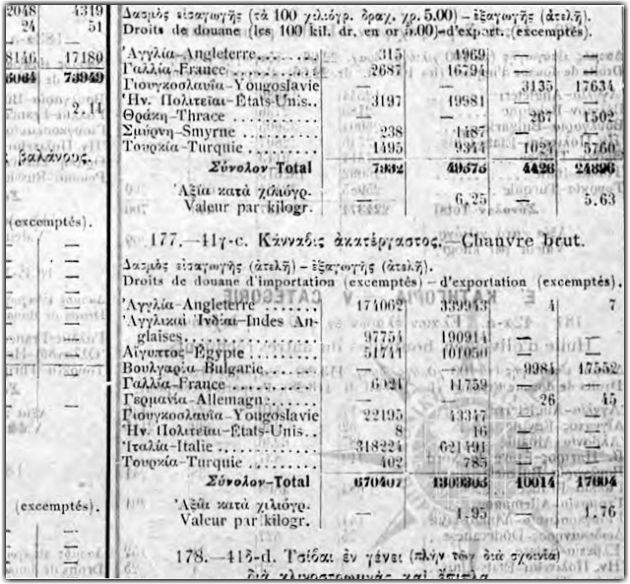 2048 4319
24 51
8146 17180
73949
2.11
βαλάνους.
(excemptés).
(excemptés).
Δασμὸς εἰσαγωγῆς (τὰ 100 χιλιόγρ. δραχ. χρ. 5.00) – ἐξαγωγῆς (ἀτελῆ).
Droits de douane (les 100 kil. dr. en or 5.00)–d'export. (excemptés).
Ἀγγλία–Angleterre 315 1969 — —
Γαλλία–France 2687 16794 — —
Γιουγκοσλαυΐα–Yougoslavie — — 3135 17634
Ἡν. Πολιτεῖαι–États-Unis.. 3197 19981 — —
Θράκη–Thrace — — 267 1502
Σμύρνη–Smyrne 238 1487 — —
Τουρκία–Turquie 1495 9344 1024 5760
Σύνολον–Total 7932 49575 4426 24896
Ἀξία κατὰ χιλιόγρ.
Valeur par kilogr. — 6.25 — 5.63
177.—41γ-c. Κάνναβις ἀκατέργαστος.—Chanvre brut.
Δασμὸς εἰσαγωγῆς (ἀτελῆ) – ἐξαγωγῆς (ἀτελῆ).
Droits de douane d'importation (excemptés) – d'exportation (excemptés).
Ἀγγλία–Angleterre 174062 339943 4 7
Ἀγγλικαὶ Ἰνδίαι–Indes An-
glaises 97754 190914 — —
Αἴγυπτος–Égypte 51741 101050 — —
Βουλγαρία–Bulgarie — — 9984 17552
Γαλλία–France 6021 11759 — —
Γερμανία–Allemagne — — 26 45
Γιουγκοσλαυΐα–Yougoslavie 22195 43347 — —
Ἡν. Πολιτεῖαι–États-Unis.. 8 16 — —
Ἰταλία–Italie 318224 621491 — —
Τουρκία–Turquie 402 785 — —
Σύνολον–Total 670407 1309305 10014 17604
Ἀξία κατὰ χιλιόγρ.
Valeur par kilogr. — 1.95 — 1.76
178.—41δ-d. Τσίβαι ἐν γένει (πλὴν τῶν διὰ σχοινία)